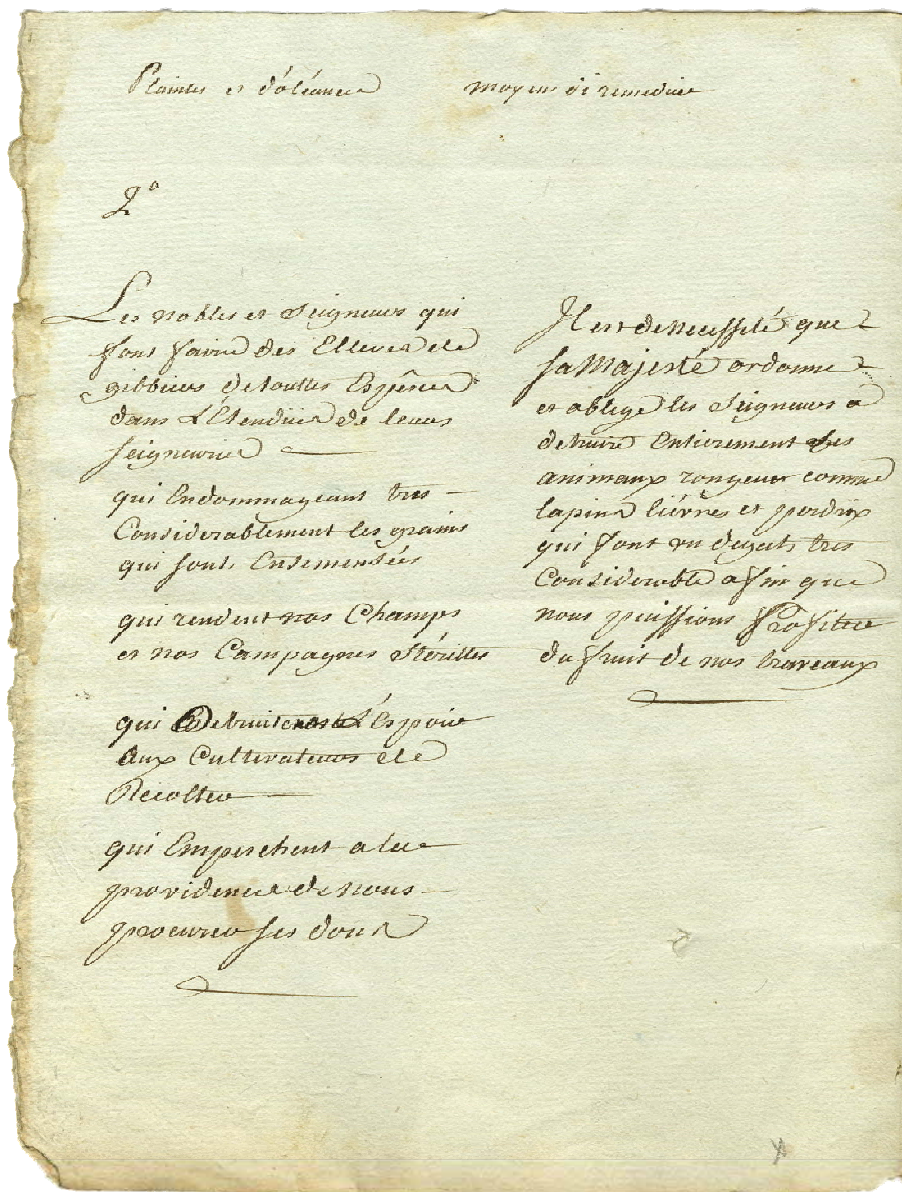 Plaintes et d'oléances
moyens di remedier
2°
Les nobles et Seigneurs qui
font faire des Elleves de
gibbiers de touttes Espêces
dans L'Etendüe de leurs
seigneuries
qui Endommageant tres
Considerablement les grains
qui sont Ensemensées
qui rendent nos Champs
et nos Campagnes Stérilles
qui Detruisent L'Espoir
aux Cultivateurs de
Récolter
qui Empeschent a la
providence de nous
procurer ses dons
Il est de necessité que
sa Majesté ordonne
et oblige les Seigneurs a
detruire Entierement ses
animaux rongeur comme
lapins liévres et perdrix
qui font un degats tres
Considerable afin que
nous puissions Profiter
du fruit de nos traveaux